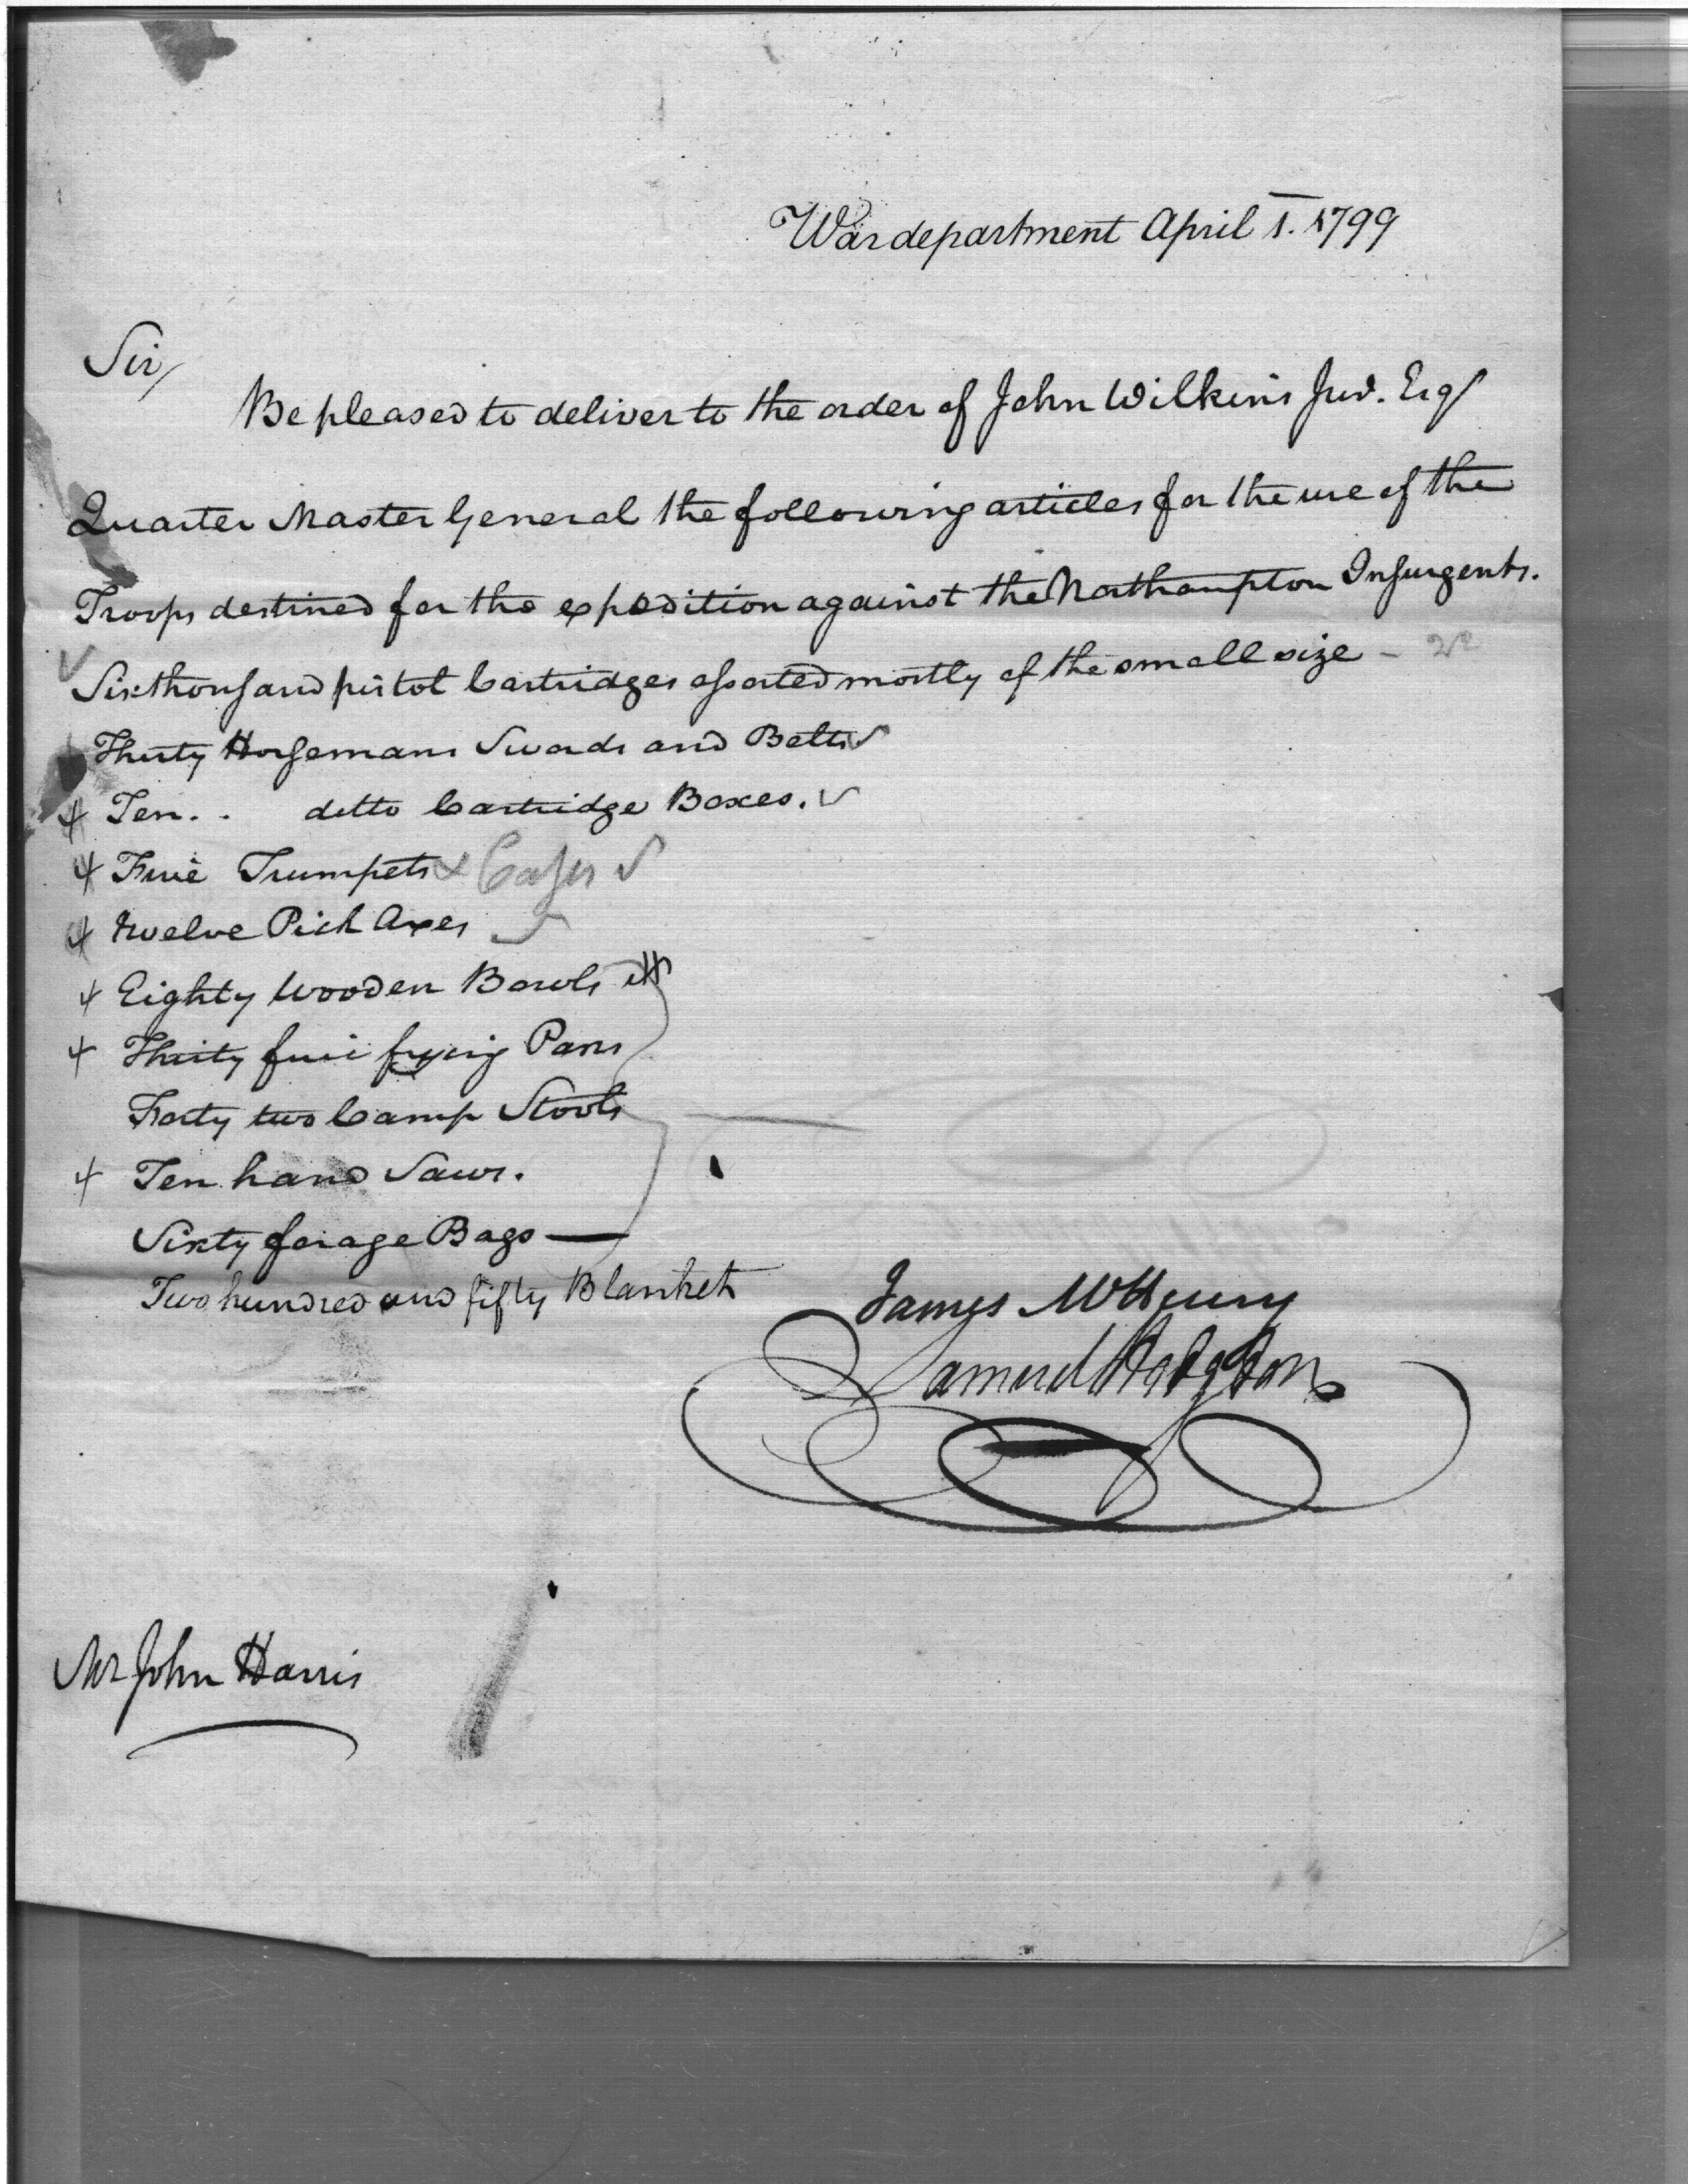 War department April 1. 1799
Sir/
Be pleased to deliver to the order of John Wilkins Junr. Esqr
Quarter Master General the following articles for the use of the
Troops destined for the expedition against the Northampton Insurgents.
Six thousand pistol Cartridges assorted mostly of the small size –
Thirty Horsemans Swords and Belts
Ten . . ditto Cartridge Boxes.
Five Trumpets & Cases
twelve Pick Axes
Eighty Wooden Bowls
Thirty five frying Pans
Forty two Camp Stools
Ten hand Saws.
Sixty forage Bags —
Two hundred and fifty Blankets
James McHenry
Samuel Hodgdon
Mr John Harris